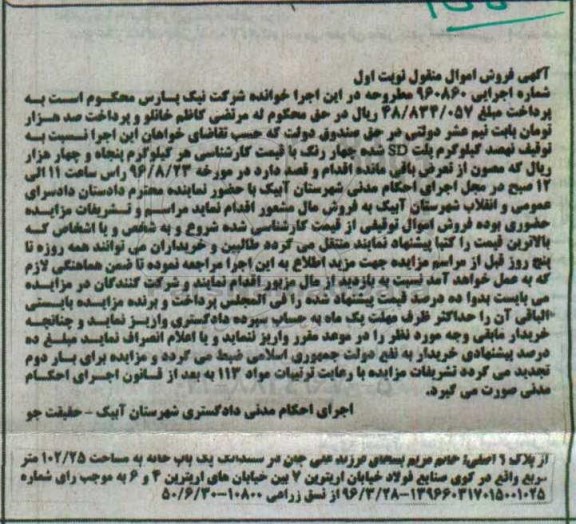 آگهی فروش اموال منقول نوبت اول
شماره اجرایی ۹۶۰۸۶۰ مطروحه در این اجرا خوانده شرکت نیک پارس محکوم است به
پرداخت مبلغ ۴۸/۸۳۴/۰۵۷ ریال در حق محکوم له مرتضی کاظم خانلو و پرداخت صد هزار
تومان بابت نیم عشر دولتی در حق صندوق دولت که حسب تقاضای خواهان این اجرا نسبت به
توقیف نهصد کیلوگرم پلت SD شده چهار رنگ با قیمت کارشناسی هر کیلوگرم پنجاه و چهار هزار
ریال که مصون از تعرض باقی مانده اقدام و قصد دارد در مورخه ۹۶/۸/۲۳ راس ساعت ۱۱ الی
۱۲ صبح در محل اجرای احکام مدنی شهرستان آبیک با حضور نماینده محترم دادستان دادسرای
عمومی و انقلاب شهرستان آبیک به فروش مال مشعور اقدام نماید مراسم و تشریفات مزایده
حضوری بوده فروش اموال توقیفی از قیمت کارشناسی شده شروع و به شخص و یا اشخاص که
بالاترین قیمت را کتبا پیشنهاد نمایند منتقل می گردد طالبین و خریداران می توانند همه روزه تا
پنج روز قبل از مراسم مزایده جهت مزید اطلاع به این اجرا مراجعه نموده تا ضمن هماهنگی لازم
که به عمل خواهد آمد نسبت به بازدید از مال مزبور اقدام نمایند و شرکت کنندگان در مزایده
می بایست بدوا ده درصد قیمت پیشنهاد شده را فی المجلس پرداخت و برنده مزایده بایستی
الباقی آن را حداکثر ظرف مهلت یک ماه به حساب سپرده دادگستری واریز نماید و چنانچه
خریدار مابقی وجه مورد نظر را در موعد مقرر واریز ننماید و یا اعلام انصراف نماید مبلغ ده
درصد پیشنهادی خریدار به نفع دولت جمهوری اسلامی ضبط می گردد و مزایده برای بار دوم
تجدید می گردد تشریفات مزایده با رعایت ترتیبات مواد ۱۱۳ به بعد از قانون اجرای احکام
مدنی صورت می گیرد.
اجرای احکام مدنی دادگستری شهرستان آبیک - حقیقت جو
از پلاک ۶ اصلی: خانم مریم فرزند علی جان در ششدانگ یک باب خانه به مساحت ۱۰۲/۲۵ متر
مربع واقع در کوی صنایع فولاد خیابان اریترین ۷ بین خیابان های اریترین ۴ و ۶ به موجب رای شماره
۱۳۹۶۶۰۳۱۷۰۱۵۰۰۱۰۲۵-۹۶/۳/۲۸ از نسق زراعی ۱۰۸۰۰-۵۰/۶/۳۰